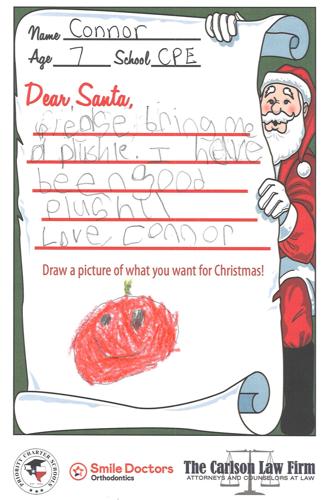 Name Connor
Age 7 School CPE
Dear Santa,
please bring me
a plushie. I have
been good
plushy
Love, Connor
Draw a picture of what you want for Christmas!
PRIORITY CHARTER SCHOOLS
Smile Doctors
Orthodontics
The Carlson Law Firm
ATTORNEYS AND COUNSELORS AT LAW